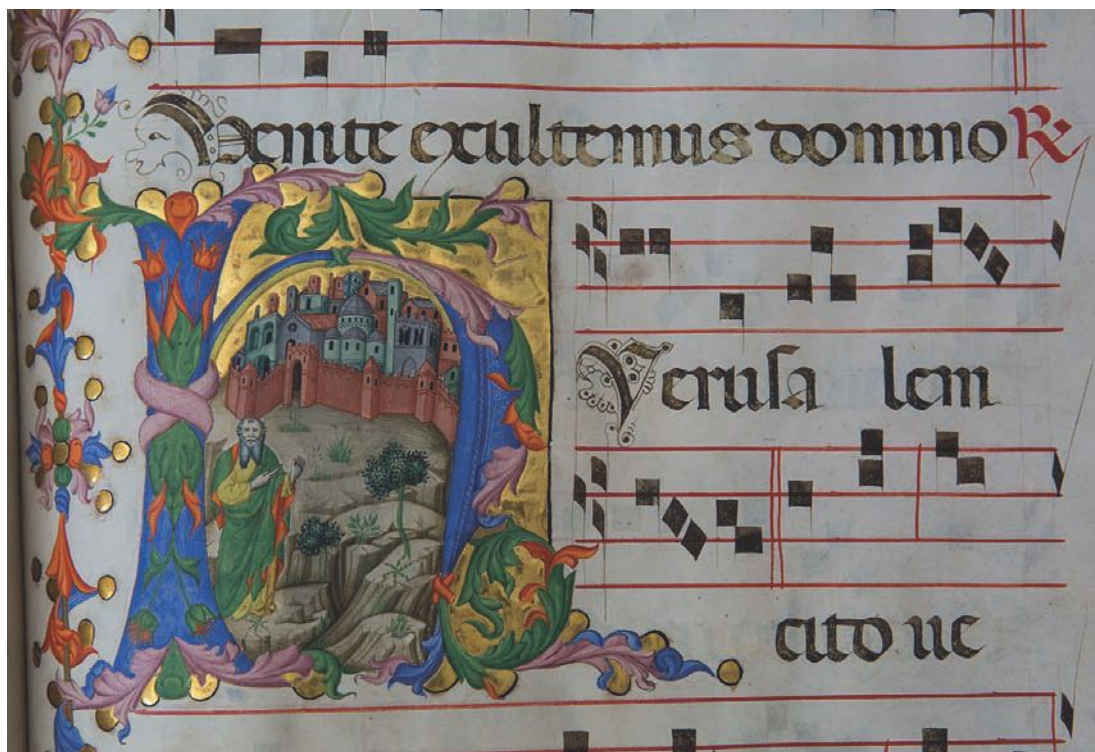 Venite exultemus domino R
HYeruſa lem
cito ue